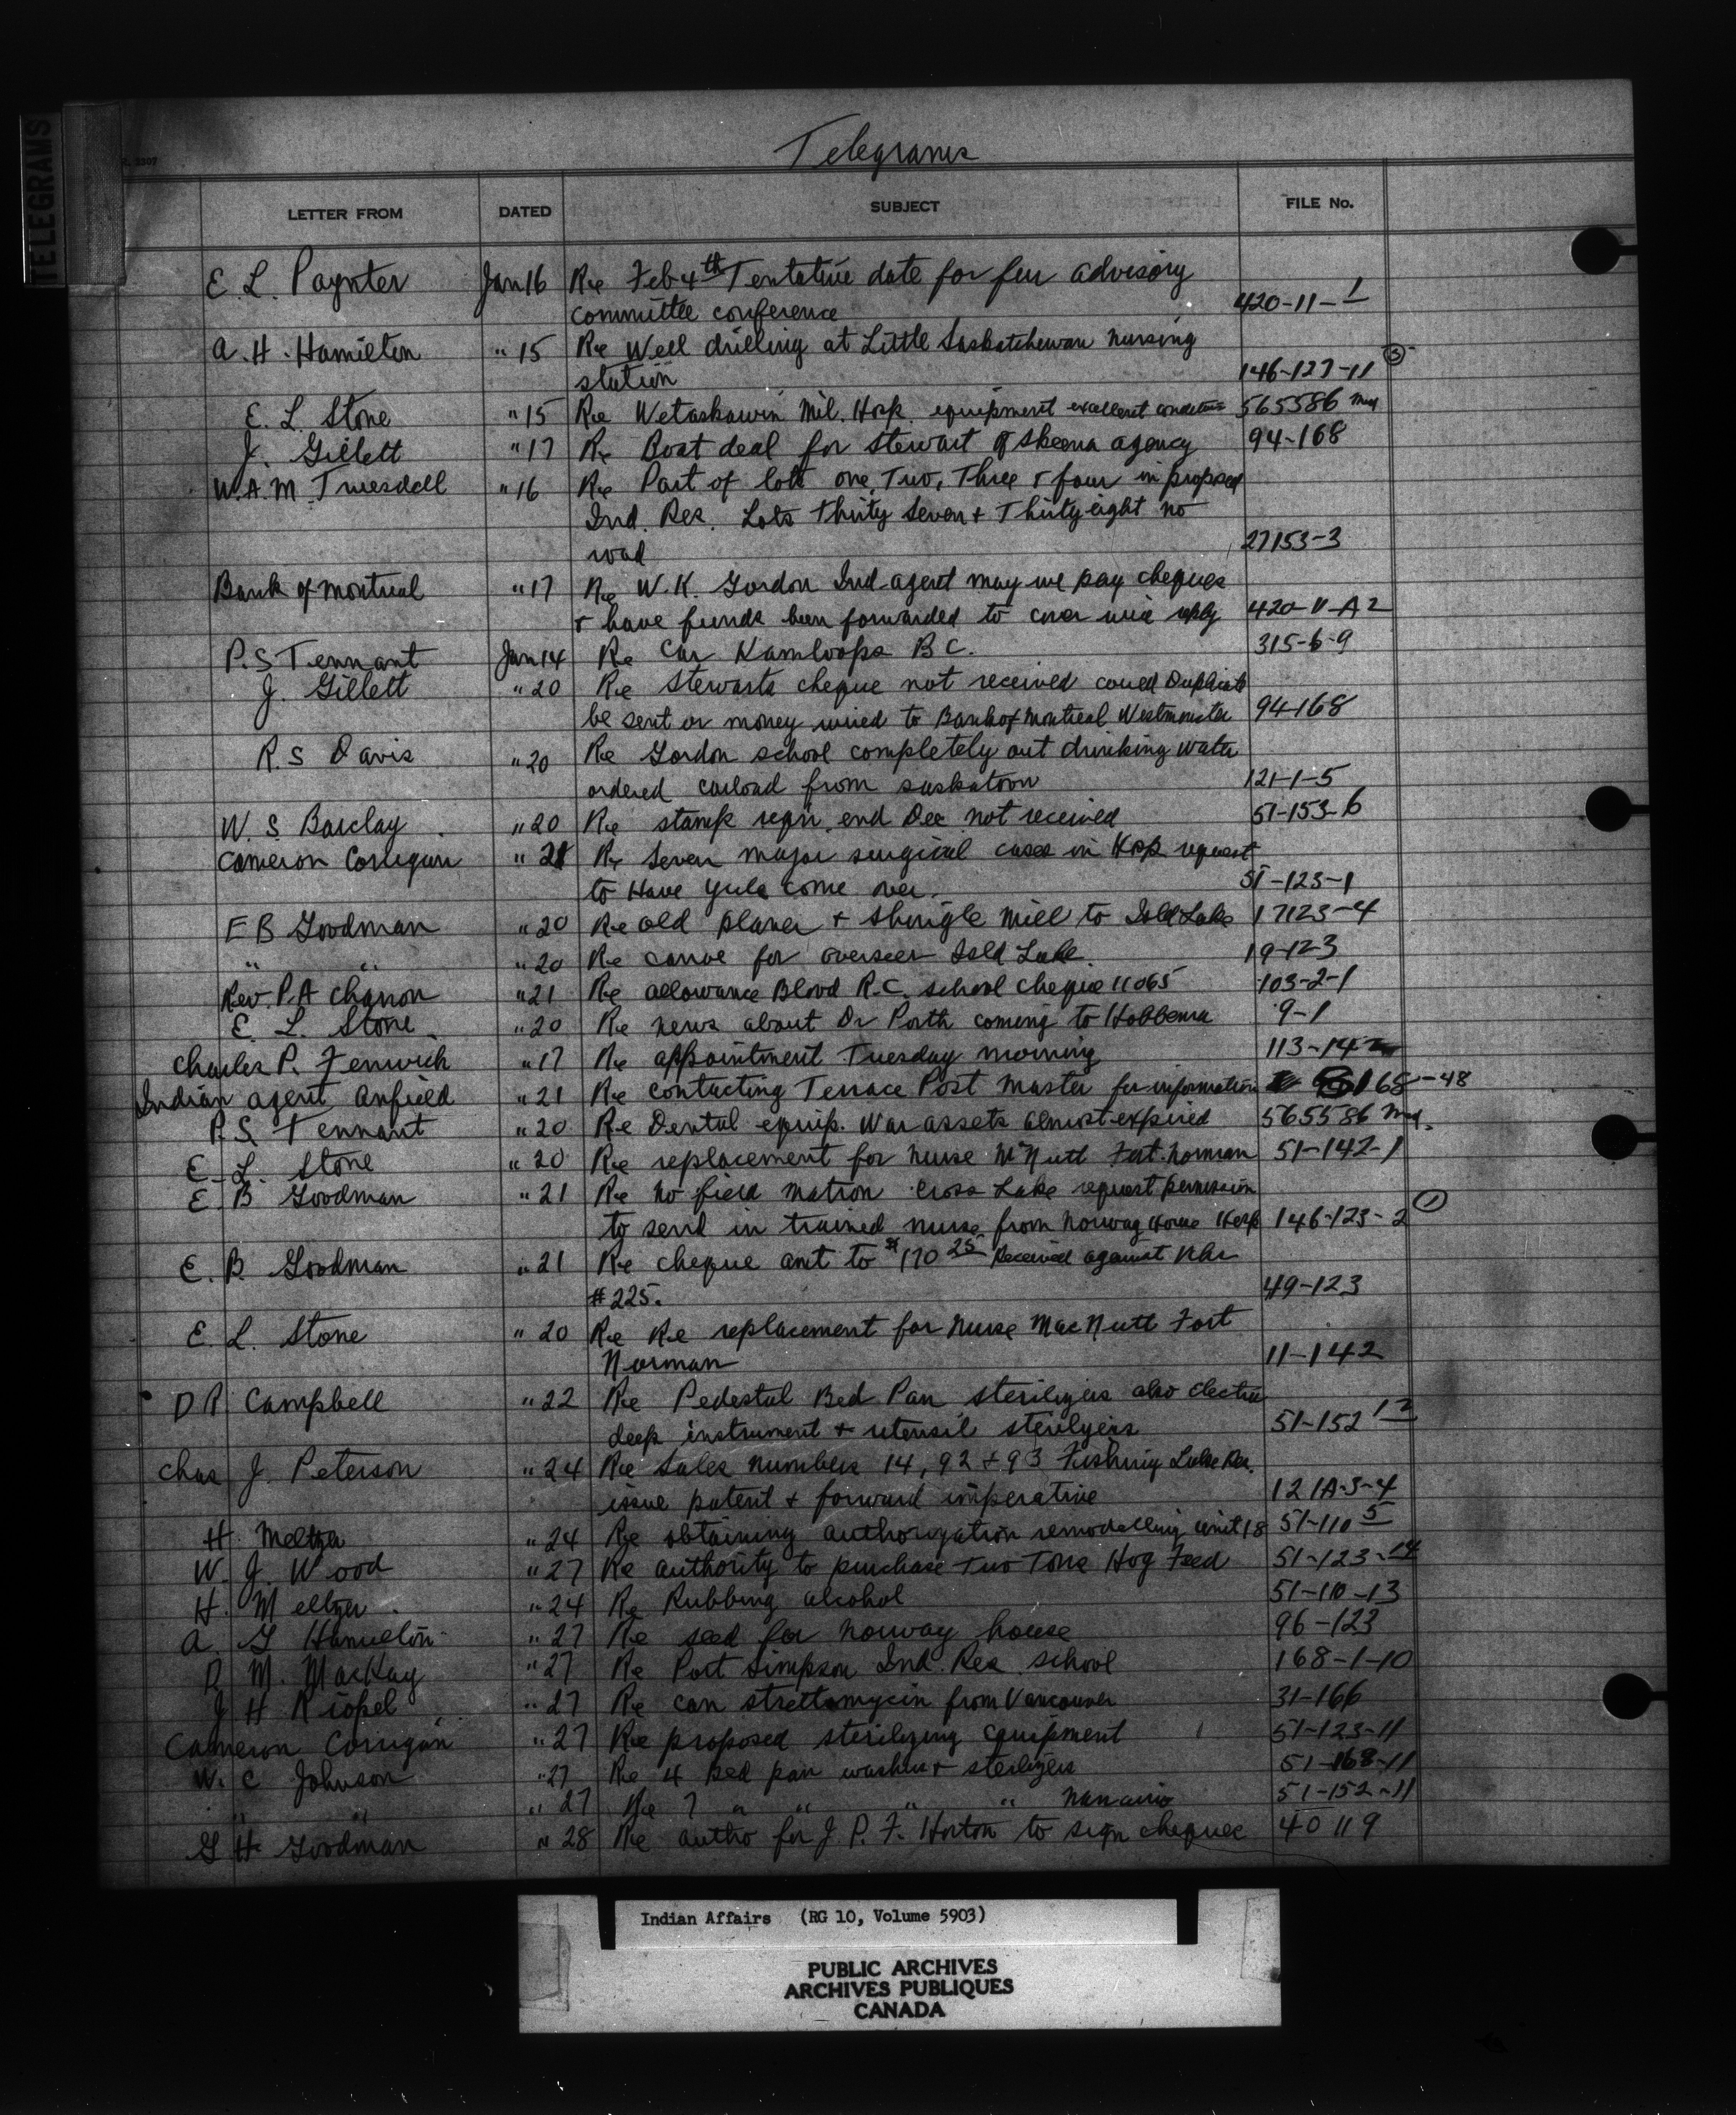 TELEGRAMS
Telegrams
LETTER FROM DATED SUBJECT FILE No.
E. L. Paynter Jan 16 Re Feb 4th Tentative date for fur advisory
committee conference 420-11-1
A. H. Hamilton " 15 Re Well drilling at Little Saskatchewan nursing
station 146-127-11 (3)
E. L. Stone " 15 Re Wetaskawin Mil. Hosp. equipment excellent condition 565586 Med
J. Gillett " 17 Re Boat deal for Stewart of Skeena agency 94-168
W. A. M. Truesdell " 16 Re Part of lots one, Two, Three & four in proposed
Ind. Res. Lots Thirty Seven & Thirty eight no
road 27153-3
Bank of Montreal " 17 Re W. K. Gordon Ind. agent may we pay cheques
& have funds been forwarded to cover wire reply 420-V-A2
P. S Tennant Jan 14 Re Car Kamloops B C. 315-6-9
J. Gillett " 20 Re Stewarts cheque not received could Duplicate
be sent or money wired to Bank of Montreal Westminster 94168
R. S Davis " 20 Re Gordon school completely out drinking water
ordered carload from saskatoon 121-1-5
W. S Barclay " 20 Re stamp reqn. end Dec not received 51-153-6
Cameron Corrigan " 21 Re Seven major surgical cases in Hosp request
to Have Yule come over. 51-123-1
E B Goodman " 20 Re old planer & shingle mill to Isld Lake 17123-4
" " " 20 Re canoe for overseer Isld Lake. 19-123
Rev. P. A Charron " 21 Re allowance Blood R. C. school cheque 11065 103-2-1
E. L. Stone " 20 Re news about Dr Porth coming to Hobbema 9-1
Charles P. Fenwick " 17 Re appointment Tuesday morning 113-142
Indian agent Anfield " 21 Re contacting Terrace Post Master for information 168-48
P. S. Tennant " 20 Re Dental equip. War assets almost expired 565586 Med.
E. L. Stone " 20 Re replacement for nurse McNutt Fort Norman 51-142-1
E. B Goodman " 21 Re no field matron Cross Lake request permission
to send in trained nurse from Norway House Hosp 146-123-2 (1)
E. B. Goodman " 21 Re cheque amt to $170 25 Received against
#225. 49-123
E. L. Stone " 20 Re Re replacement for nurse MacNutt Fort
Norman 11-142
D R Campbell " 22 Re Pedestal Bed Pan sterilizers also electric
deep instrument & utensil sterilyers 51-152 1-2
Chas J. Peterson " 24 Re Sales numbers 14, 92 & 93 Fishing Lake Res.
issue patent & forward imperative 121A-3-4
H. Meltzer " 24 Re obtaining authorization remodelling unit 18 51-110 5
W. J. Wood " 27 Re authority to purchase Two Tons Hog Feed 51-123-14
H. Meltzer " 24 Re Rubbing alcohol 51-110-13
A. G Hamilton " 27 Re seed for norway house 96-123
D M. MacKay " 27 Re Port Simpson Ind. Res. school 168-1-10
J H Riopel " 27 Re can strettomycin from Vancouver 31-166
Cameron Corrigan " 27 Re proposed sterilizing equipment 51-123-11
W. C Johnson " 27 Re 4 Bed pan washers & sterilizers 51-168-11
" " " 27 Re 7 " " " " Nanaimo 51-152-11
G H. Goodman " 28 Re autho for J. P. F. Horton to sign cheques 40119
Indian Affairs (RG 10, Volume 5903)
PUBLIC ARCHIVES
ARCHIVES PUBLIQUES
CANADA